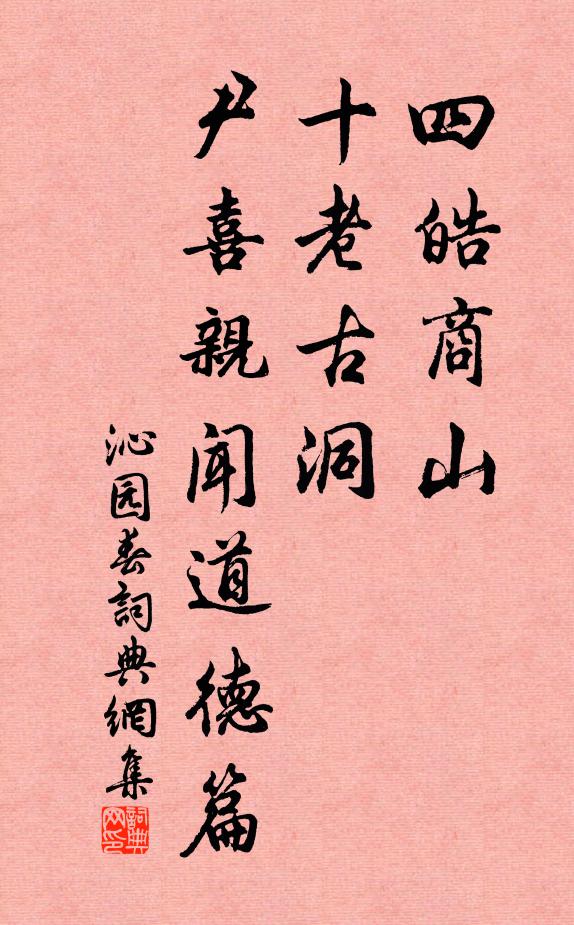 四皓商山
十老古洞
尹喜親闻道德篇
沁园春詞典網集
詞典
网印